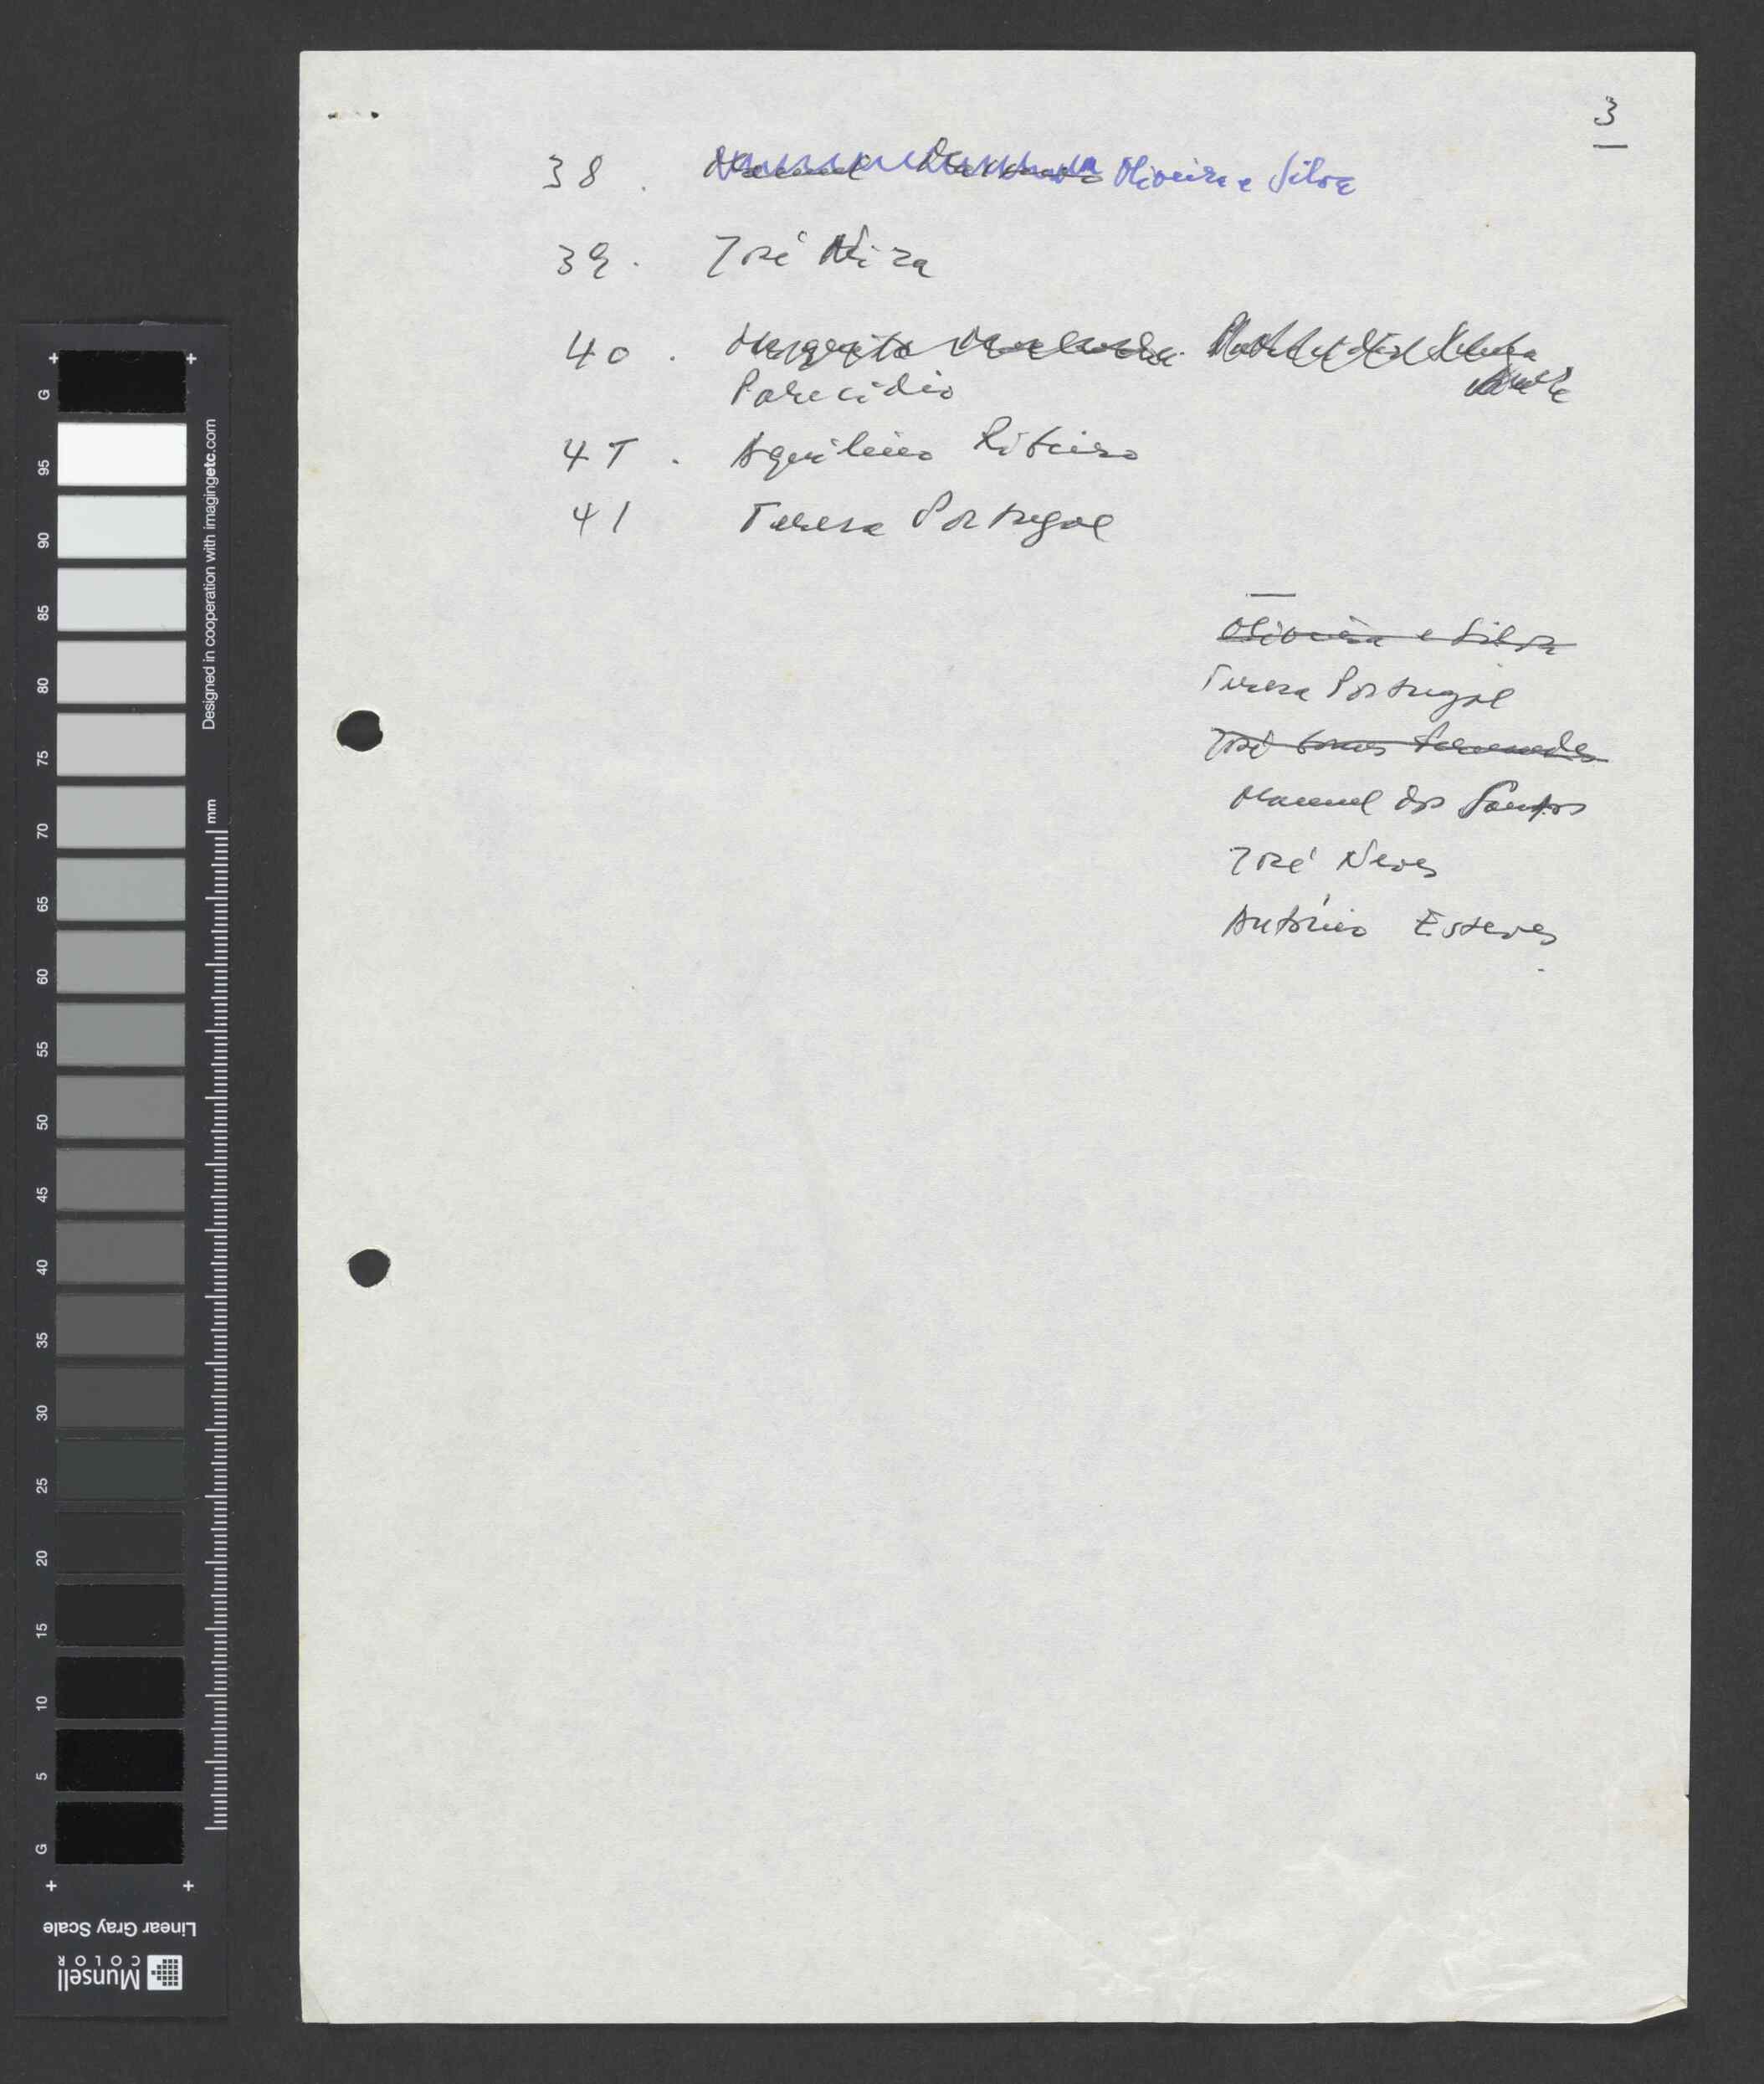 3
38. Oliveira e Silva
39. José Niza
40.
Parcídio
4T. Aquilino Ribeiro
41 Teresa Portugal
Oliveira e Silva
Teresa Portugal
José
Manuel dos Santos
José Neves
António Esteves
+ +
G
95
90
85
80
75
70
65
60
55
50
45
40
35
30
25
20
15
10
5
G
+ +
Designed in cooperation with imagingetc.com
mm
Linear Gray Scale
Munsell
COLOR